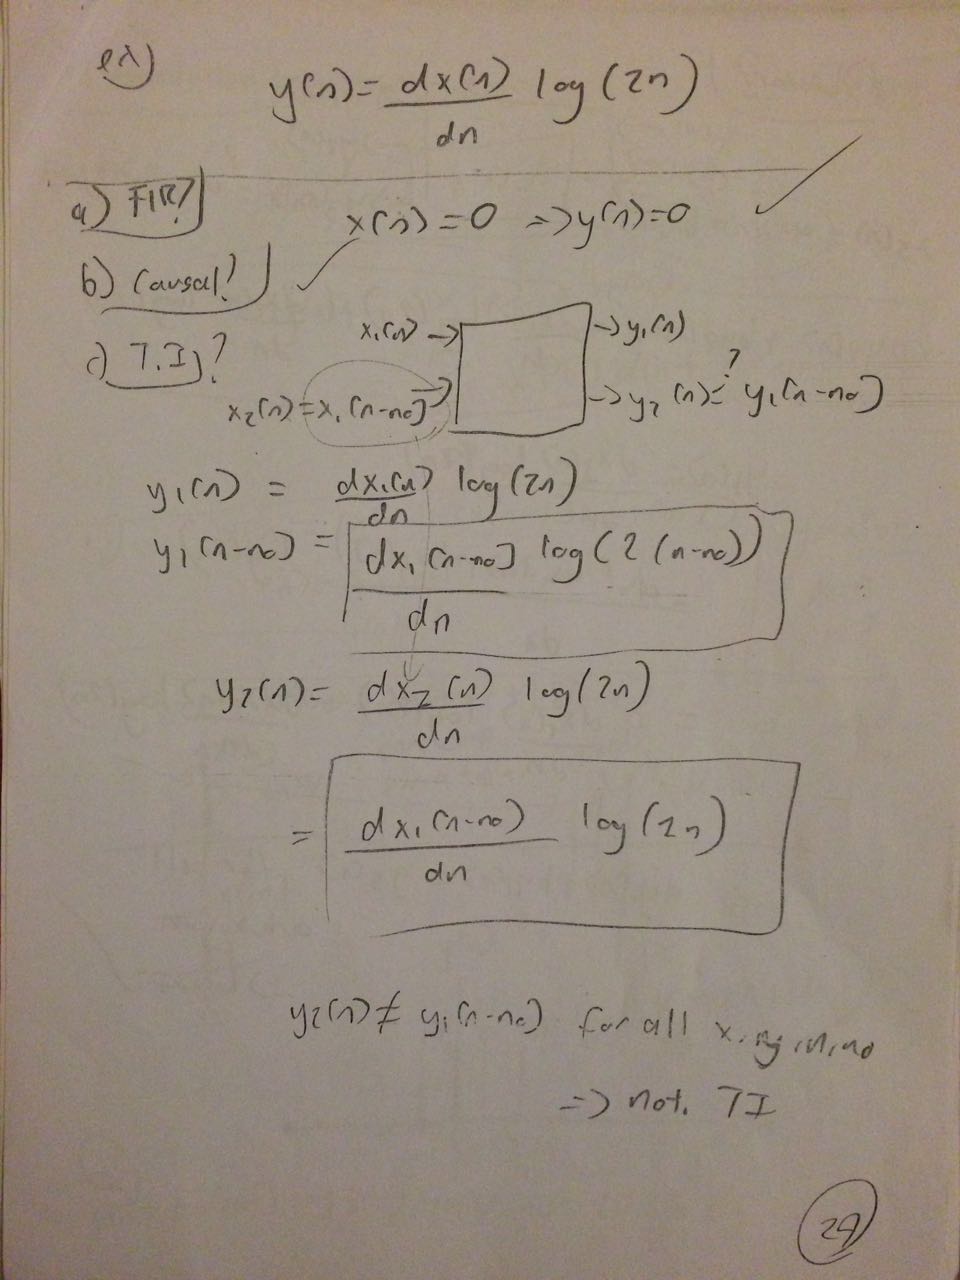 ex)
y(n) = dx(n)/dn log(2n)
a) FIR? x(n) = 0 => y(n) = 0 ✓
b) Causal? ✓
c) T.I.?
x₁(n) → → y₁(n)
x₂(n) = x₁[n-n₀] → → y₂(n) =? y₁(n-n₀)
y₁(n) = dx₁(n)/dn log(2n)
y₁(n-n₀) = dx₁[n-n₀]/dn log(2(n-n₀))
y₂(n) = dx₂(n)/dn log(2n)
= dx₁(n-n₀)/dn log(2n)
y₂(n) ≠ y₁(n-n₀) for all x, n, n₀
=> not. TI